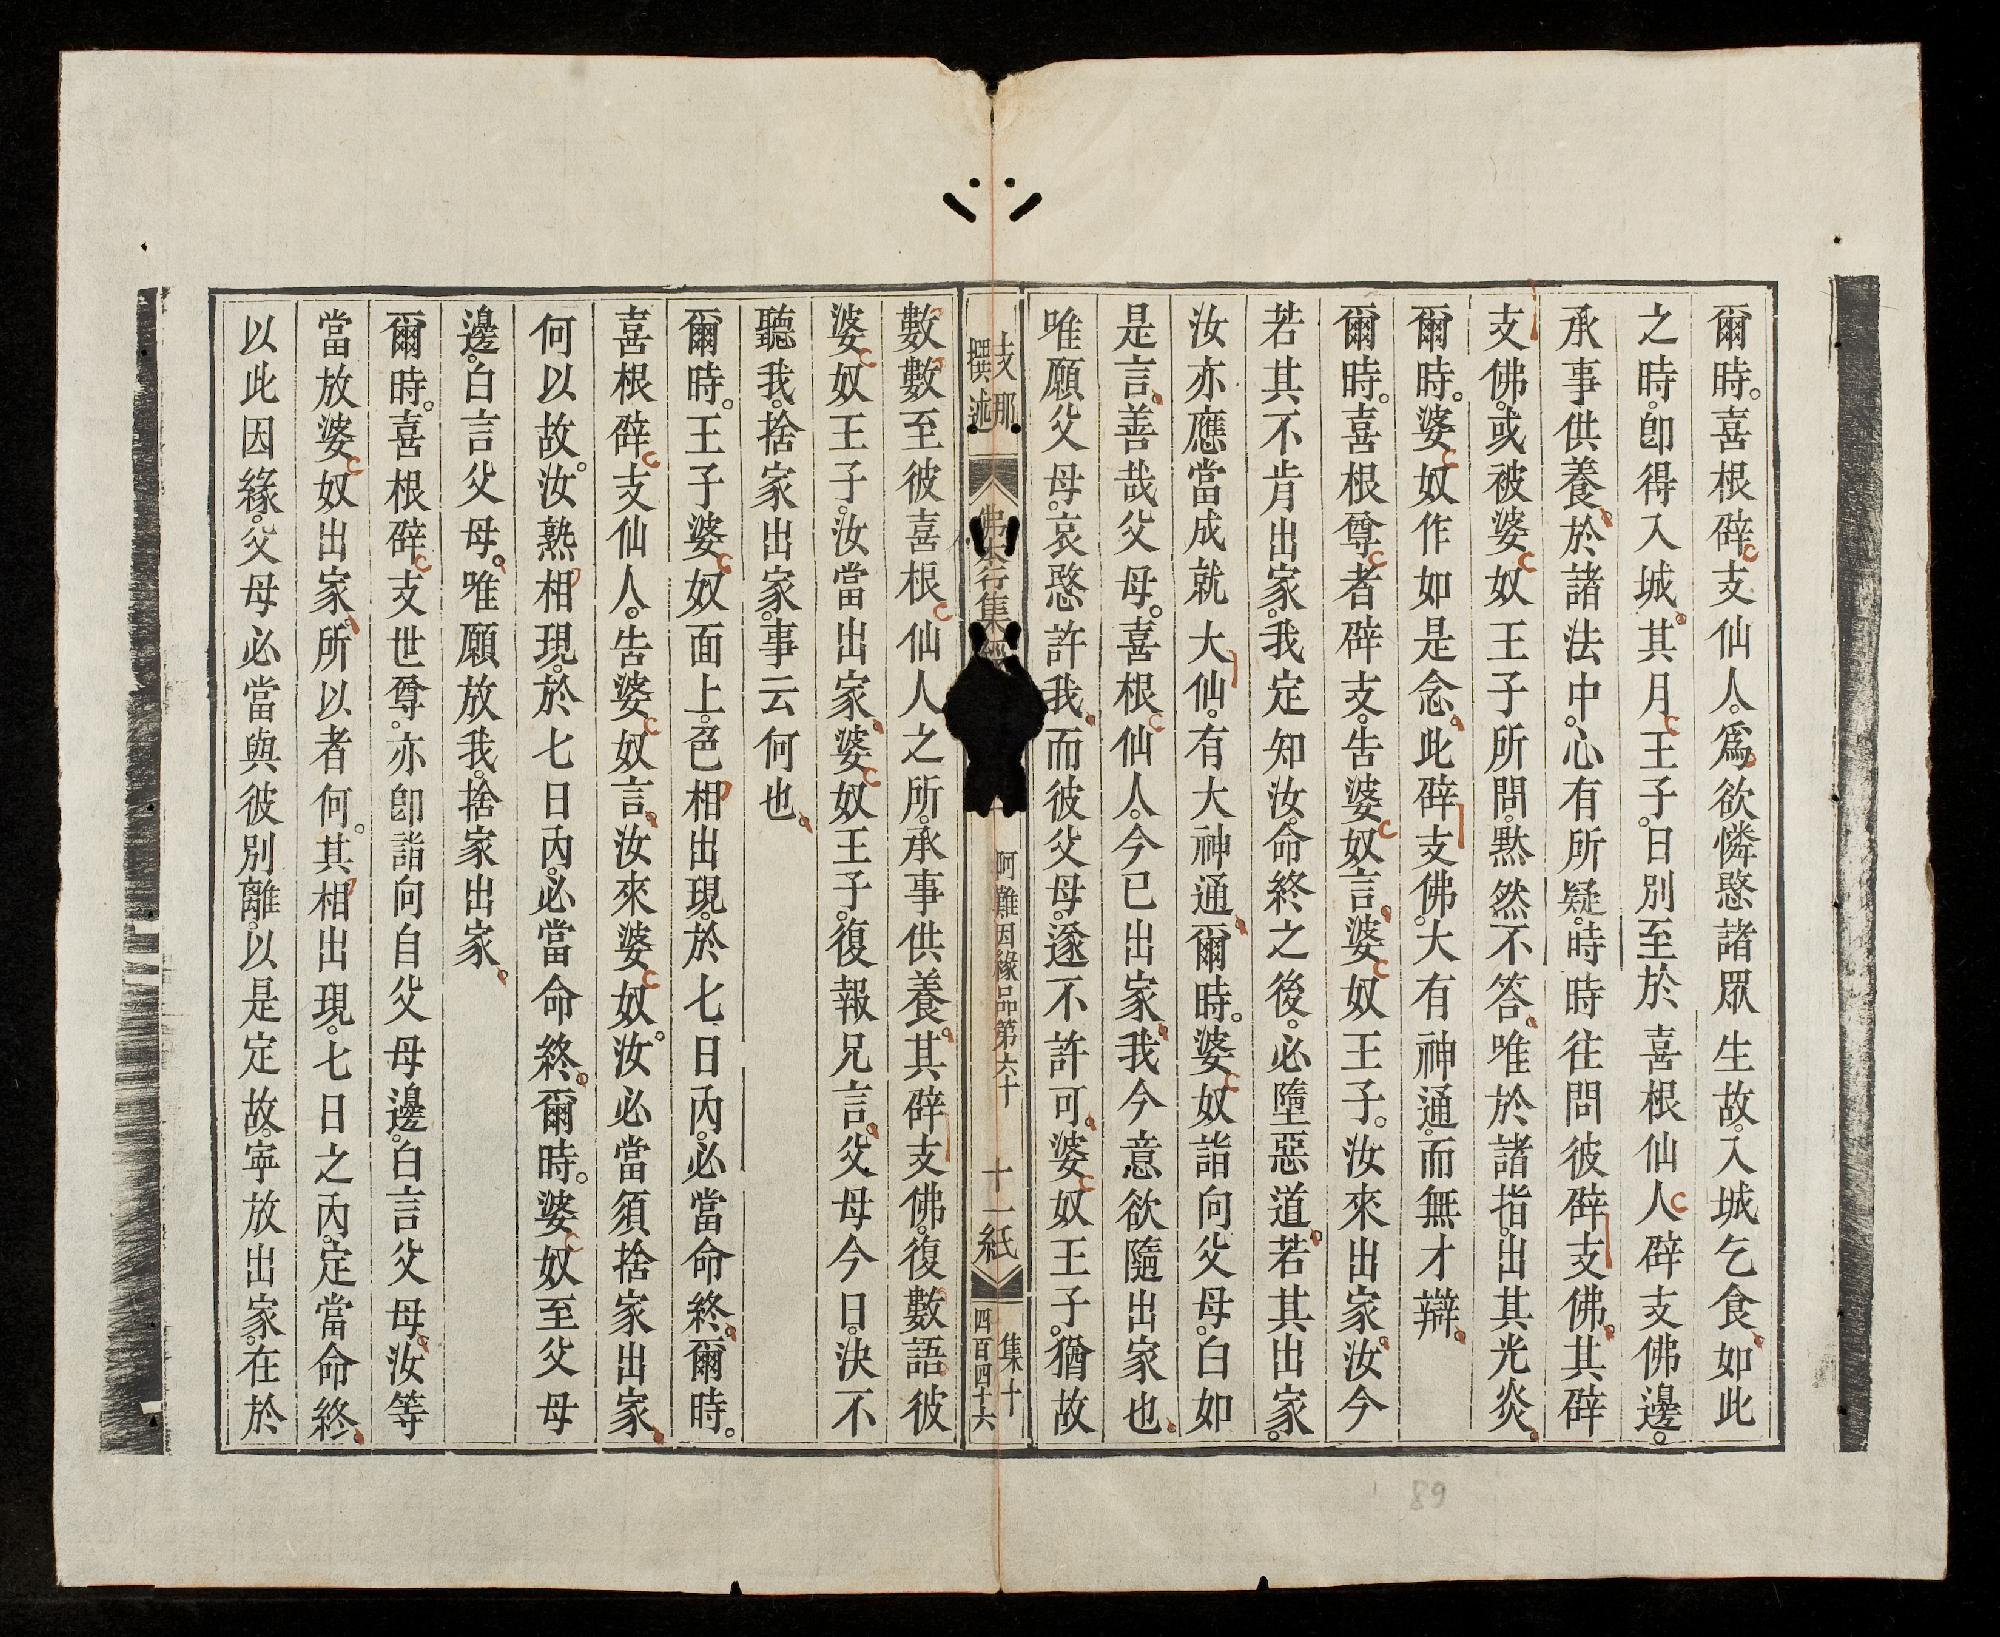 爾時。喜根辟支仙人。爲欲憐愍諸眾生故。入城乞食。如此
之時。卽得入城。其月王子。日別至於喜根仙人辟支佛邊。
承事供養。於諸法中。心有所疑。時時往問彼辟支佛。其辟
支佛。或被婆奴王子所問。默然不答。唯於諸指。出其光炎。
爾時。婆奴作如是念。此辟支佛。大有神通。而無才辯。
爾時。喜根尊者辟支。告婆奴言。婆奴王子。汝來出家。汝今
若其不肯出家。我定知汝。命終之後。必墮惡道。若其出家。
汝亦應當成就大仙。有大神通。爾時。婆奴詣向父母。白如
是言。善哉父母。喜根仙人。今已出家。我今意欲隨出家也。
唯願父母。哀愍許我。而彼父母。遂不許可。婆奴王子。猶故
支那
撰述
佛本行集經
阿難因緣品第六十
十一紙
集十
四百四十六
數數至彼喜根仙人之所。承事供養。其辟支佛。復數語彼
婆奴王子。汝當出家。婆奴王子。復報兄言。父母今日。決不
聽我。捨家出家。事云何也。
爾時。王子婆奴面上。色相出現。於七日內。必當命終。爾時。
喜根辟支仙人。告婆奴言。汝來婆奴。汝必當須捨家出家。
何以故。汝熟相現。於七日內。必當命終。爾時。婆奴至父母
邊。白言父母。唯願放我。捨家出家。
爾時。喜根辟支世尊。亦卽詣向自父母邊。白言父母。汝等
當放婆奴出家。所以者何。其相出現。七日之內。定當命終。
以此因緣。父母必當與彼別離。以是定故。寧放出家。在於
89